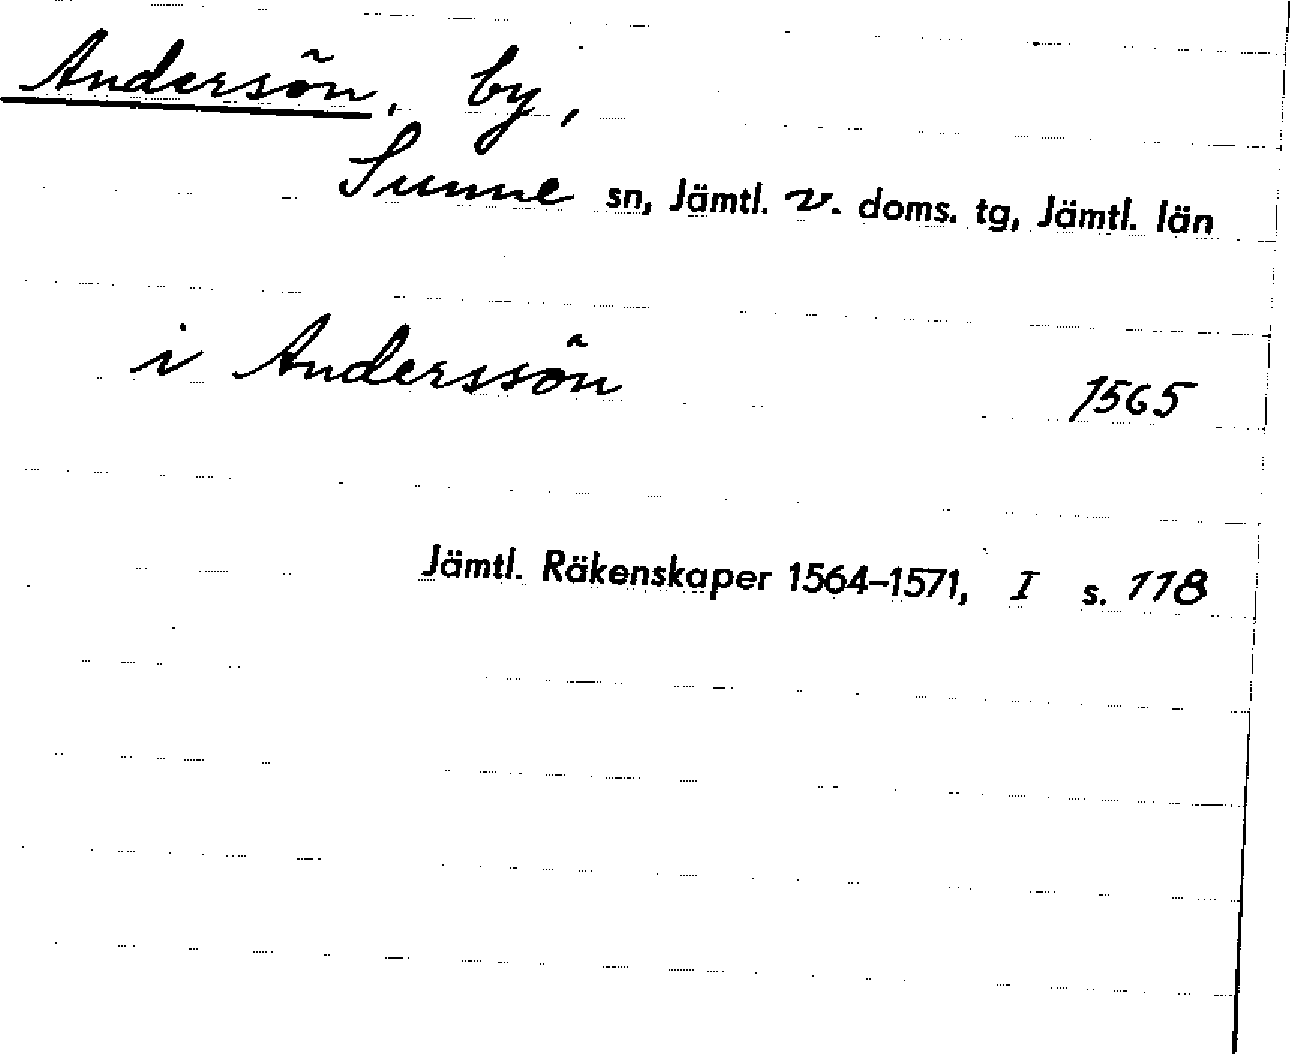 Andersön, by,
Sunne sn, Jämtl. v. doms. tg, Jämtl. län
i Anderssön 1565
Jämtl. Räkenskaper 1564–1571, I s. 118